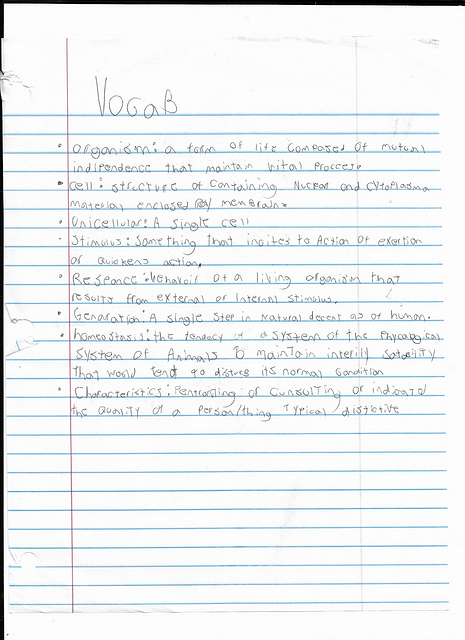 Vocab
• Organism: a form of life composed of mutual
indipendence that maintain vital process.
• cell: structure of containing Nuclear and cytoplasma
material enclosed By membrain.
• Unicellular: A single cell
• Stimulus: Something that incites to Action of exertion
or quickens action.
• Responce: behavoir of a living organism that
results from external or internal stimulus.
• Genaration: A single step in natural decent as of human.
• homeostasis: the tendecy of a system of the
system of Animals to maintain interily
that would tend go disturb its normal condition
• Characteristics: of Consulting or indicated
the quality of a person/thing Typical distictive